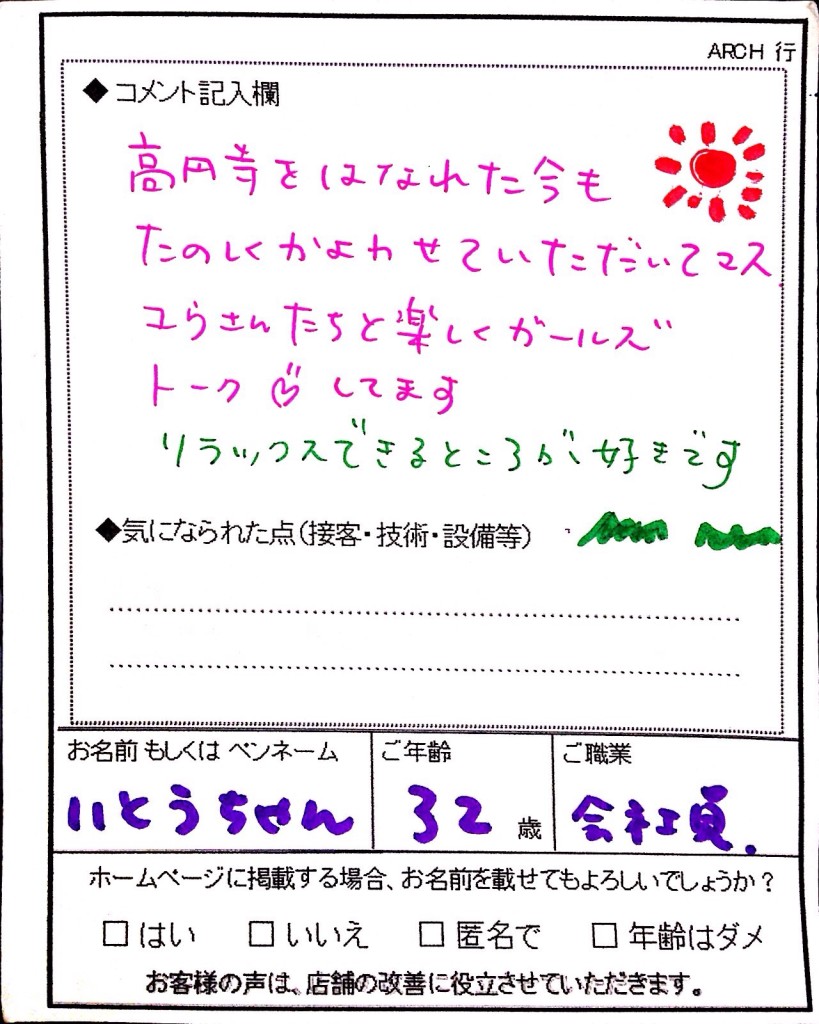 ARCH 行
◆ コメント記入欄
高円寺をはなれた今も
たのしくかよわせていただいてマス
ユらさんたちと楽しくガールズ
トーク♡してます
リラックスできるところが好きです
◆気になられた点(接客・技術・設備等)
お名前 もしくは ペンネーム
いとうちゃん
ご年齢
32 歳
ご職業
会社員.
ホームページに掲載する場合、お名前を載せてもよろしいでしょうか?
□ はい □ いいえ □ 匿名で □ 年齢はダメ
お客様の声は、店舗の改善に役立させていただきます。